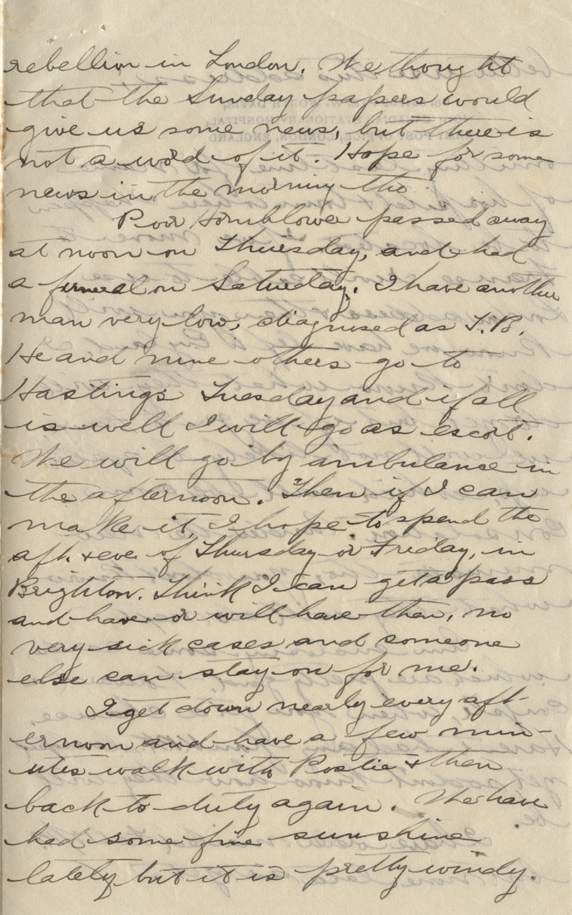 rebellion in London. We thought
that the Sunday papers would
give us some news, but there is
not a word of it. Hope for some
news in the morning tho.
Poor Hornblower passed away
at noon on Thursday, and had
a funeral on Saturday. I have another
man very low, diagnosed as T.B.
He and nine others go to
Hastings Tuesday and if all
is well I will go as escort.
We will go by ambulance in
the afternoon. Then if I can
make it, I hope to spend the
aft. & eve. of Thursday or Friday, in
Brighton. Think I can get a pass
and have or will have then, no
very sick cases and someone
else can stay on for me.
I get down nearly every aft
ernoon and have a few min-
utes walk with Postie & then
back to duty again. We have
had some fine sunshine
lately but it is pretty windy.